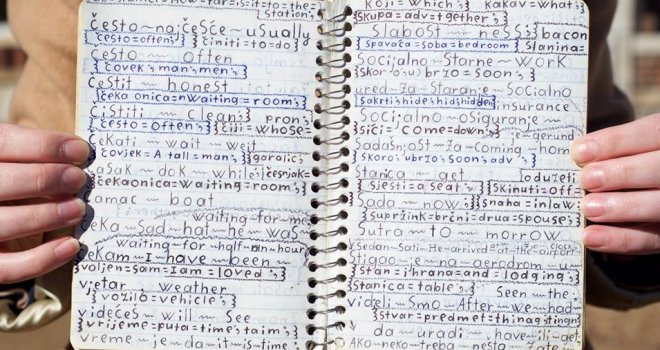 How=far=is=it=to=the=
Station;
često~najčešće~usually
{često=often;} {činiti=to=do}
često ~ often
{čovek;man;men;}
čestit ~ honest
{čeka onica=nWaiting=room;}
čistiti ~ clean; pron;
{često=often;} {čiji=whose=
čekati ~ wait ~ weit
{čovjek=A tall=man;} {garalic;
čašak ~ dok ~ while; česnjak=
{čekaonica=waiting=room;}
čamac ~ boat
waiting for me
čeka~Sad~hat~he~was
waiting~for~half~an~hour
čekam~I~have~been~
{voljen=sam=I am=loved;}
vjetar weather
{vozilo=vehicle;}
videćeš ~ will ~ See
{vrijeme=puta=time's taim;}
vreme ~ je~da~it~is~time
koji=Which; kakav=What;
{Skupa=adv=tgether;}
Slabost ~ ness; bacon
{Spavaća=Soba=bedroom} Slanina=
Socijalno ~ Starne ~ Work
{Skoro(u)brzo=Soon;}
ured~za~Staranje~Socialno
{Sakrti;hide;hid;hidden} insurance
Socijalno~osiguranje~
{Sići=Come=down;} e-gerund
Sadašnost~za~Coming home
{Skoro=ubrzo;Soon;adv}
Stanica ~ get {oduzeti
{Sjesti=a Seat;} {Skinuti=off=
Sada ~ now; {Snaha=inlaw;
{Supružnk=brčni=drua=Spouse;}
Sutra ~ to ~ morrow
Sedam~Sati~He~arrived~in~the~airport
Stigao~je~na~aerodrom~u
{Stan=ihrana=and=lodging;}
Stanica=table;} Seen the
videli~Smo~After~we~had~
{Stvar=predmet=thing
da~uradi~have~ill~me
Ako~neko~treba~nesto~